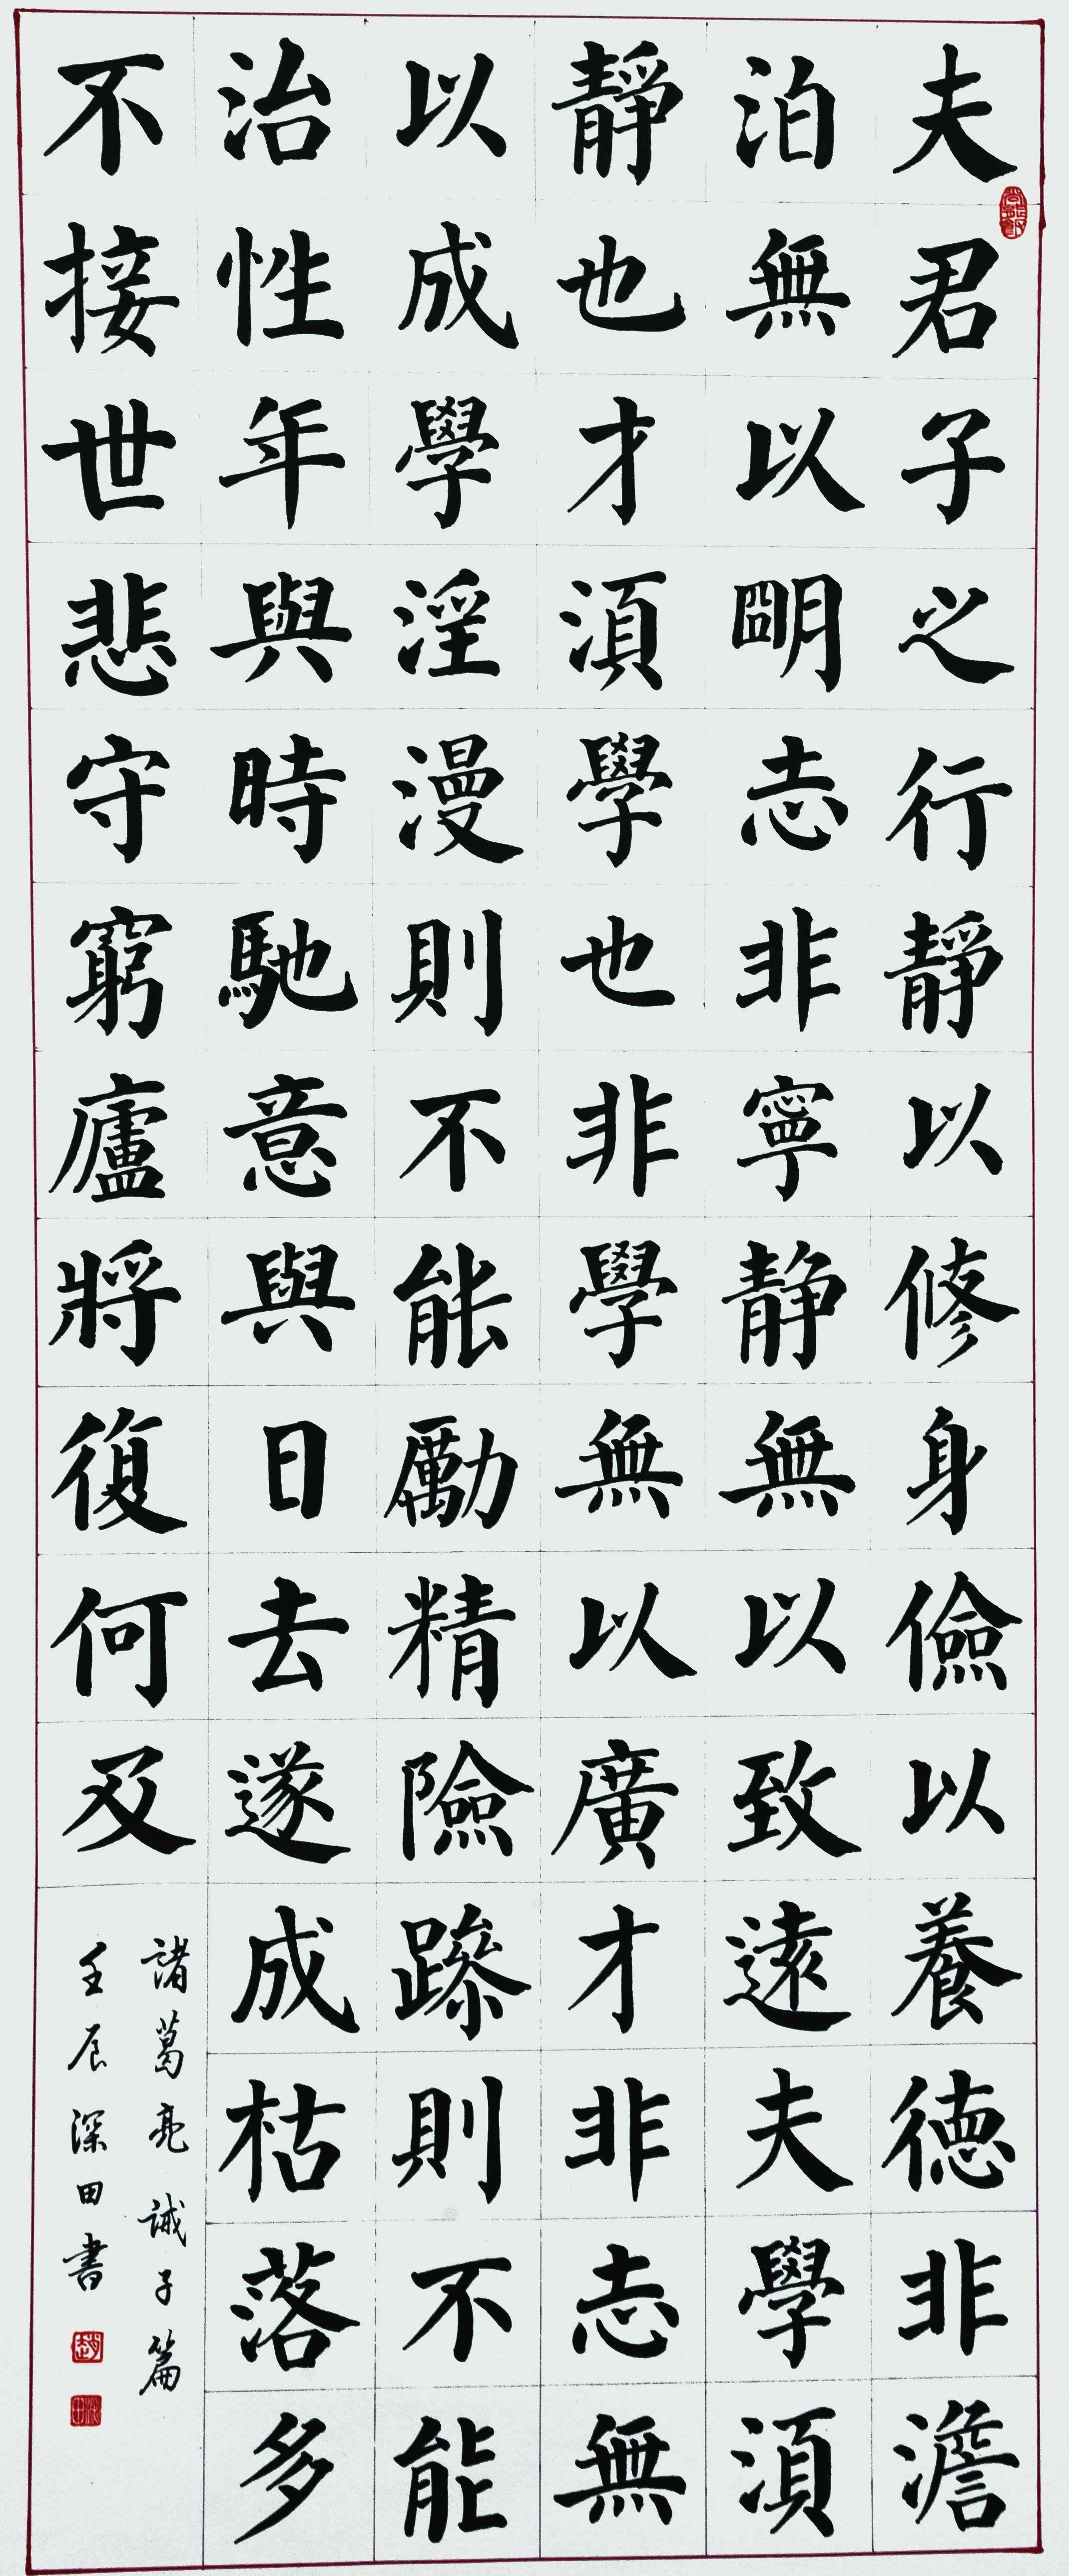 夫君子之行靜以修身儉以養德非澹
泊無以朙志非寧静無以致遠夫學湏
靜也才湏學也非學無以廣才非志無
以成學淫漫則不能勵精險躁則不能
治性年與時馳意與日去遂成枯落多
不接世悲守窮廬將復何及
諸葛亮誡子篇
壬辰深田書
趙
深田